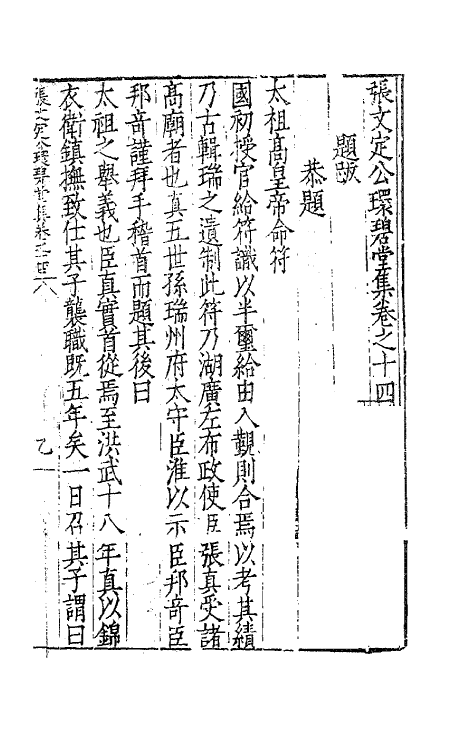 張文定公環碧堂集卷之十四
題跋
恭題
太祖高皇帝命符
國初授官給符識以半璽給由入覲則合焉以考其績
乃古輯瑞之遺制此符乃湖廣左布政使臣張真受諸
高廟者也真五世孫瑞州府太守臣淮以示臣邦奇臣
邦奇謹拜手稽首而題其後曰
太祖之舉義也臣真實首從焉至洪武十八年真以錦
衣衛鎮撫致仕其子襲職既五年矣一日召其子謂曰
張文定公環碧堂集卷之十四